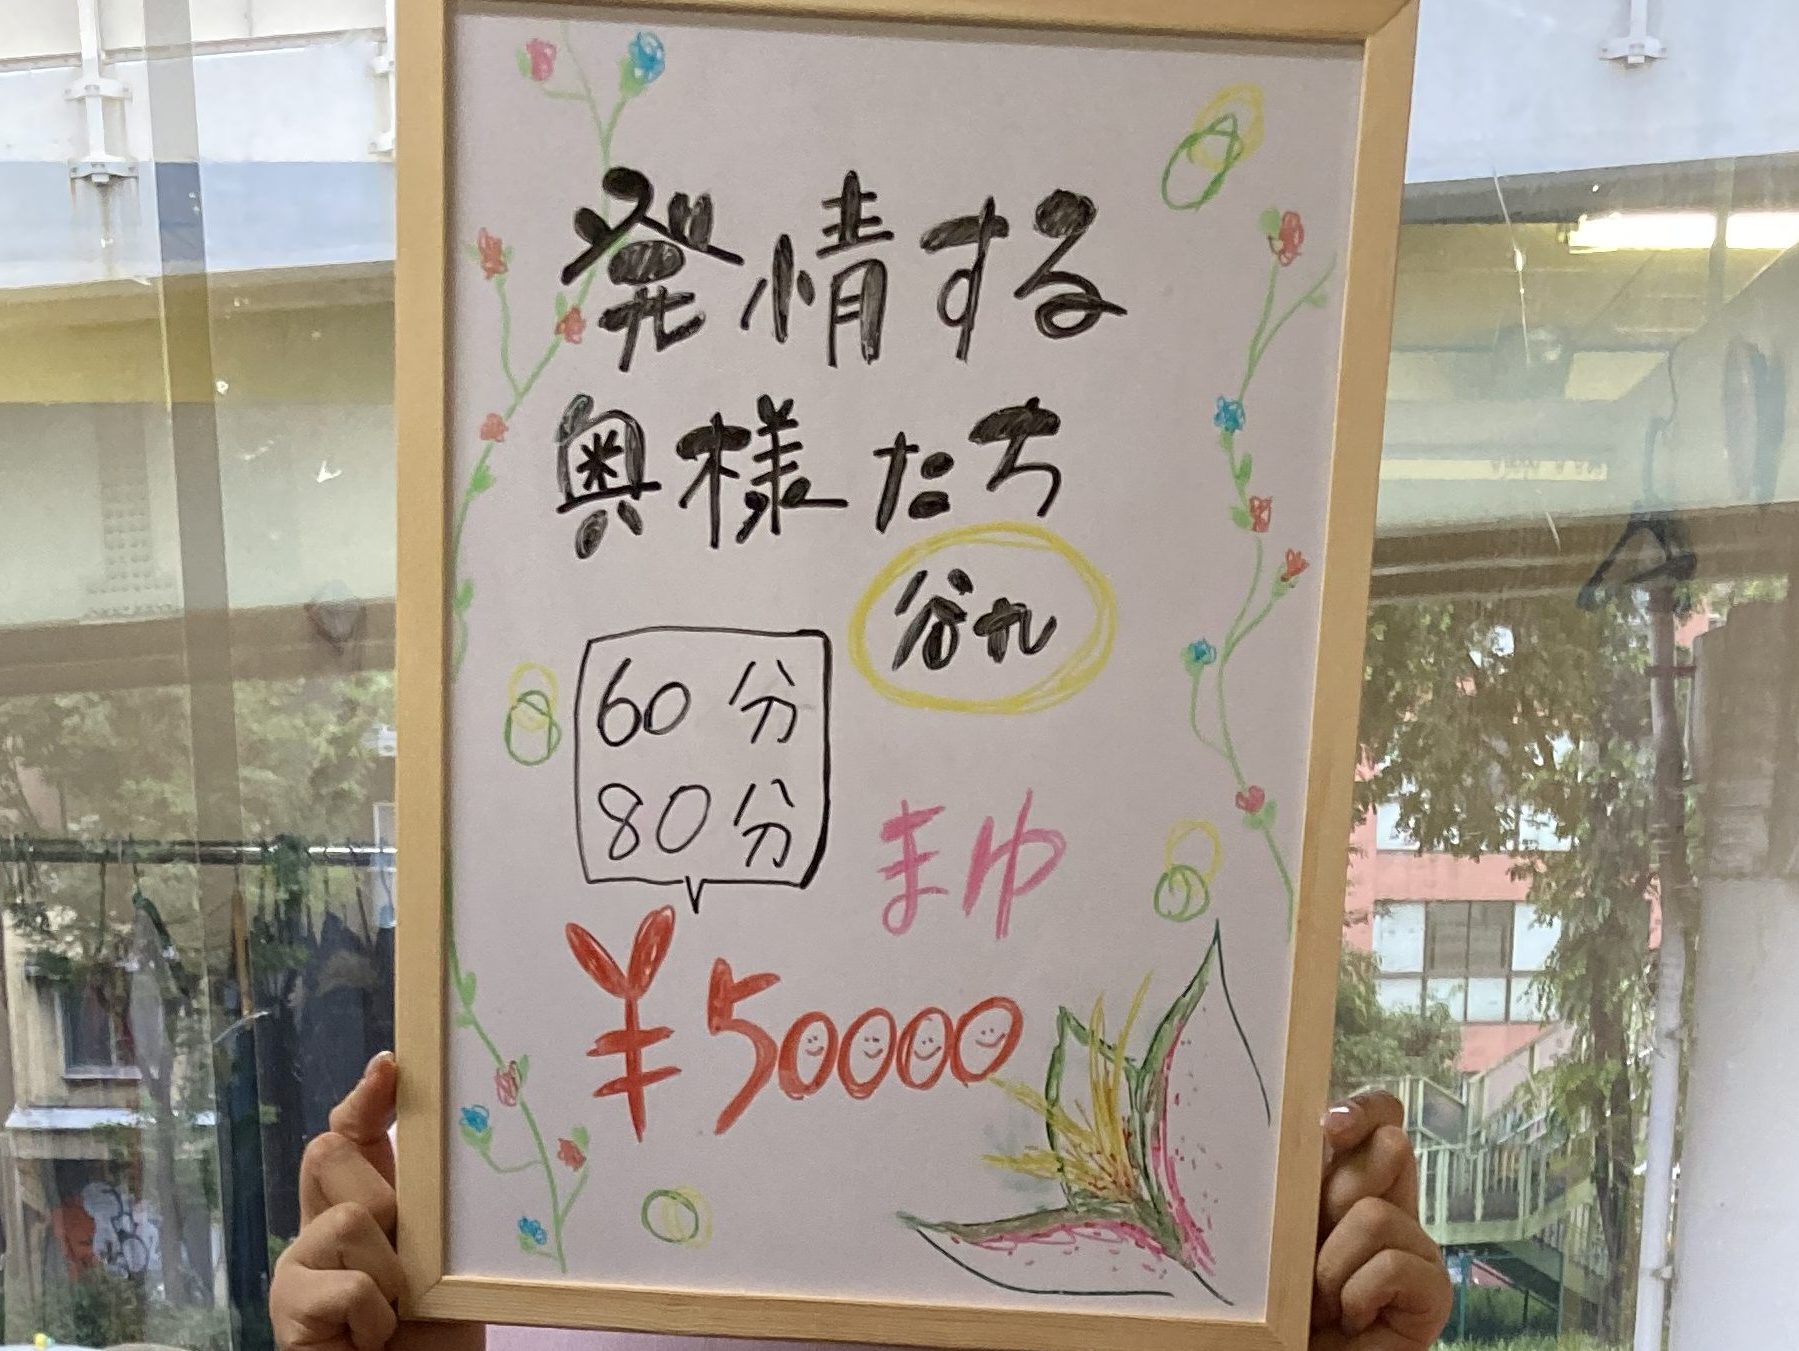 発情する
奥様たち
谷九
60分
80分
まゆ
¥50000